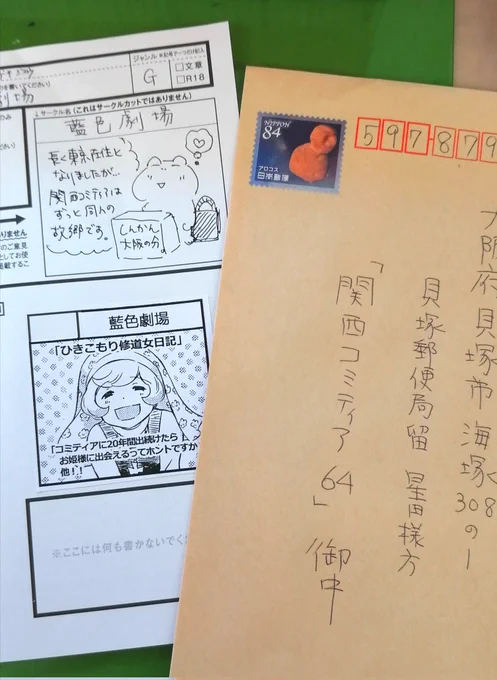 劇場
ジャンル
G
□文章
□R18
↓サークル名(これはサークルカットではありません)
藍色劇場
長く東京在住と
なりましたが…
関西コミティアは
ずっと同人の
故郷です。
しんかん
大阪の分
藍色劇場
「ひきこもり修道女日記」
「コミティアに20年間出続けたら
お姫様に出会えるってホントですか
他!!
※ここには何も書かないでくだ
NIPPON
84
アロコス
日本郵便
597-879
大阪府貝塚市海塚
308の1
貝塚郵便局留 星田様方
「関西コミティア64」御中